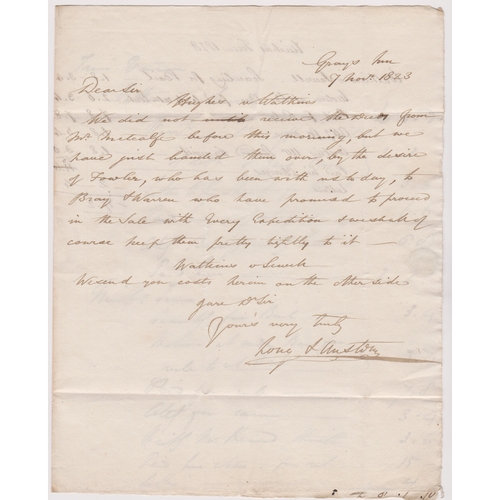 Grays Inn
7 Novr. 1823
Dear Sir
Hughes v Watkins
We did not receive the Deeds from
Mr Metcalfe before this morning, but we
have just handed them over, by the desire
of Fowler, who has been with us to day, to
Bray & Warren who have promised to proceed
in the Sale with Every Expedition & we shall of
course keep them pretty tightly to it —
Watkins v
We send you costs herein on the other side
Dr Sir
Yours very truly
& Austen